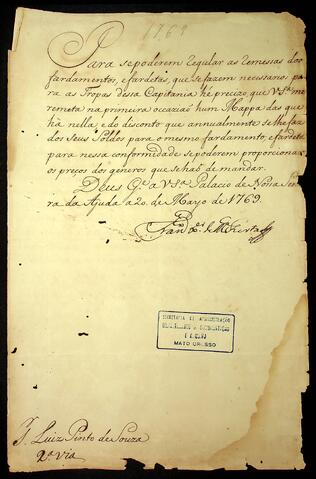 1769
Para sepoderem regular as remessas dos
fardamentos, efardetas, que se fazem necessarios pa
ra as Tropas dessa Capitania hé precizo que VSª me
remeta na primeira occaziaõ hum Mappa das que
há nella, edo desconto que annualmente selhe faz
dos seus Soldos para o mesmo fardamento, efardeta
para nessa conformidade sepoderem proporcionar
os preços dos generos que sehaõ de mandar.
Deos Gᵉ a VSª Palacio de Nossa Senho
ra da Ajuda a 20. de Mayo de 1769.
SECRETARIA DE ADMINISTRAÇÃO
MATO GROSSO
Luiz Pinto de Souza
2ª Via